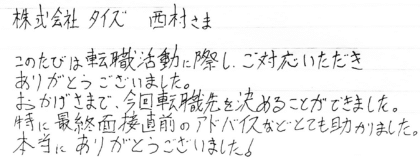 株式会社 タイズ 西村さま
このたびは転職活動に際し、ご対応いただき
ありがとうございました。
おかげさまで、今回転職先を決めることができました。
特に最終面接直前のアドバイスなどとても助かりました。
本当にありがとうございました!